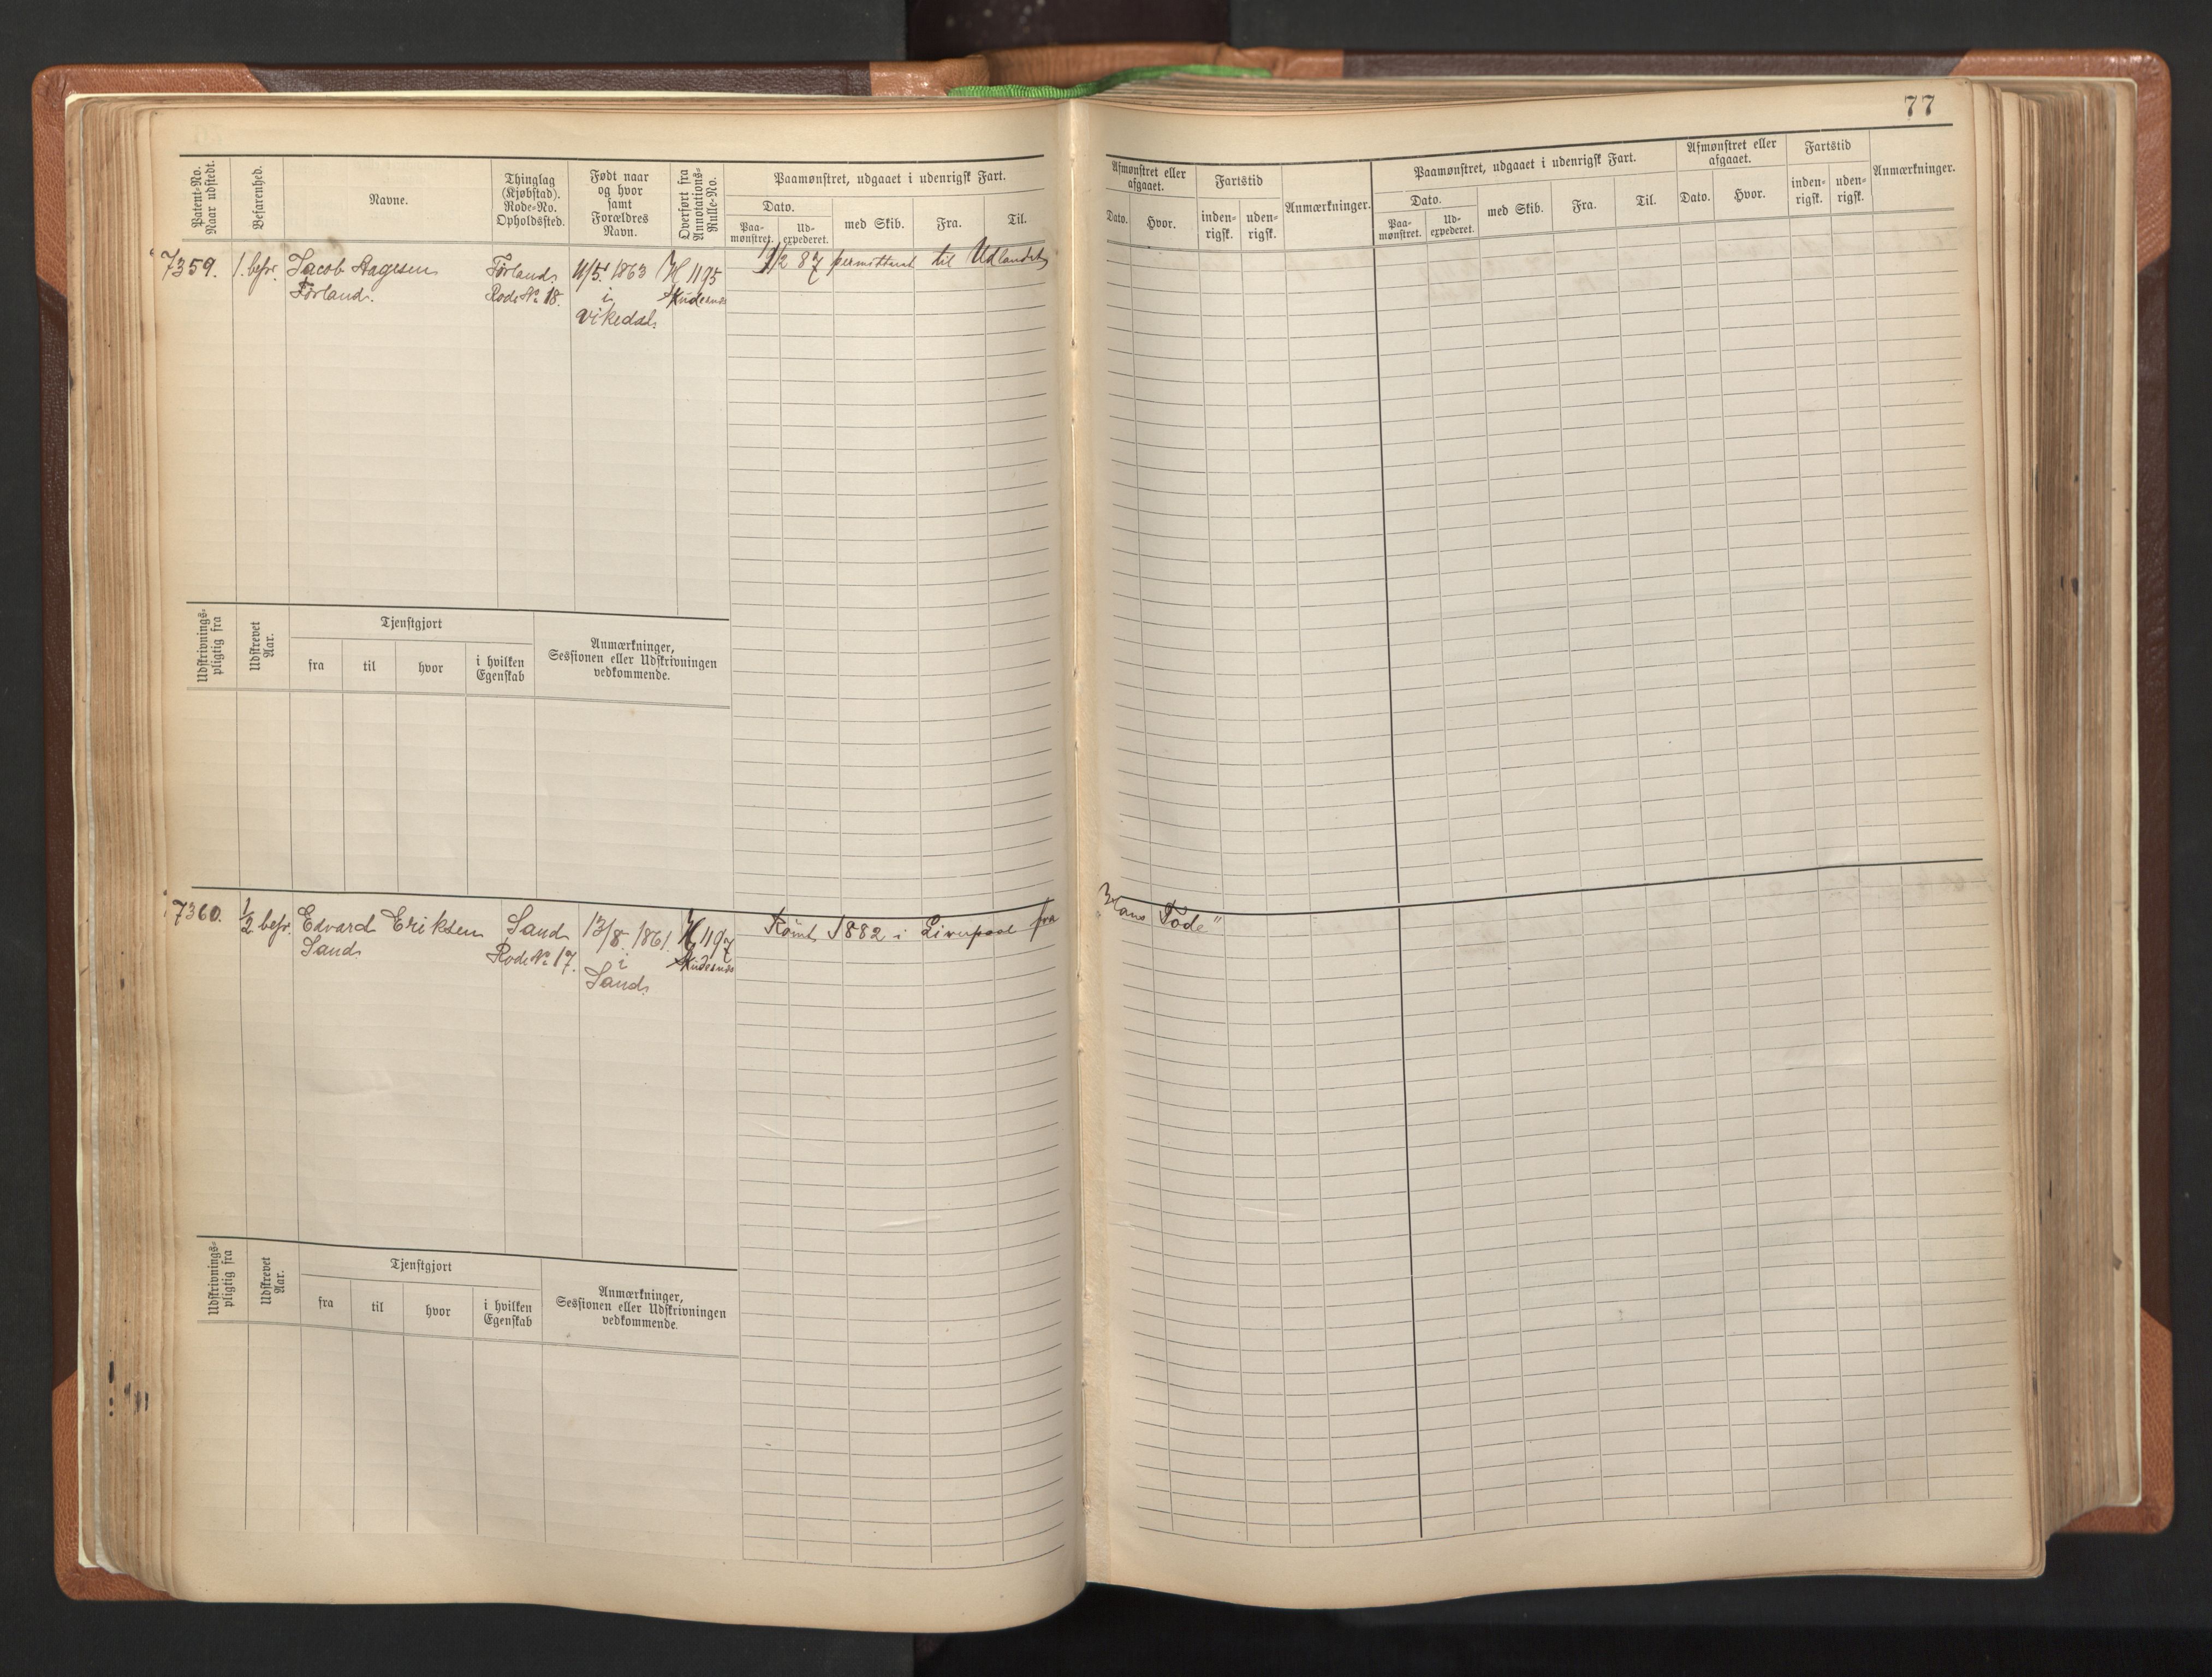 77
Patent-No. Naar udstedt.
Befarenhed.
Navne.
Thinglag (Kjøbstad). Rode-No. Opholdssted.
Født naar og hvor samt Forældres Navn.
Overført fra Annotations-Rulle-No.
Paamønstret, udgaaet i udenrigsk Fart.
Dato.
Paa-mønstret.
Ud-expederet.
med Skib.
Fra.
Til.
7359. 1. befr. Jacob Aagesen Førland 11/5 1863 H 1195 19/2 87 permitteret til Udlandet
Førland. Rode No 18. i Skudesnes
Vikedal.
Udskrivnings-pligtig fra
Udskrevet Aar.
Tjenstgjort
fra
til
hvor
i hvilken Egenskab
Anmærkninger,
Sessionen eller Udskrivningen
vedkommende.
7360. 1/2 befr. Edvard Eriksen Sand 13/8 1861. H 1197 Rømt 1882 i Liverpool fra
Sand Rode No 17. i Skudesnes
Sand
Udskrivnings-pligtig fra
Udskrevet Aar.
Tjenstgjort
fra
til
hvor
i hvilken Egenskab
Anmærkninger,
Sessionen eller Udskrivningen
vedkommende.
Afmønstret eller afgaaet.
Dato.
Hvor.
Fartstid
inden-rigsk.
uden-rigsk.
Anmærkninger.
Paamønstret, udgaaet i udenrigsk Fart.
Dato.
Paa-mønstret.
Ud-expederet.
med Skib.
Fra.
Til.
Afmønstret eller afgaaet.
Dato.
Hvor.
Fartstid
inden-rigsk.
uden-rigsk.
Anmærkninger.
Tode"